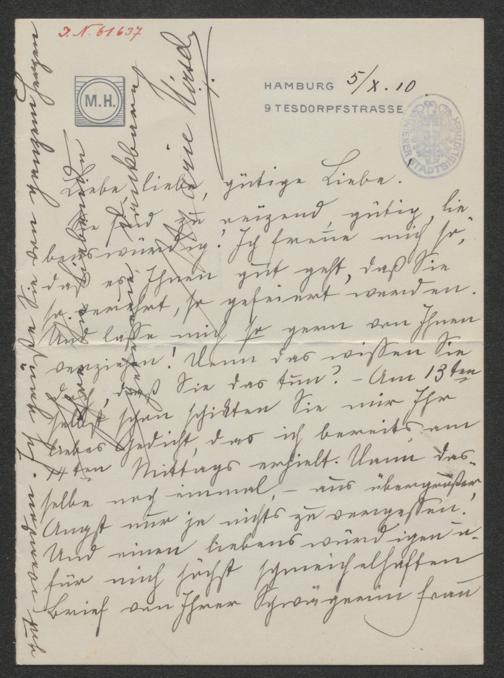 I.N. 61637
M.H.
HAMBURG 5/X.10.
9 TESDORPFSTRASSE
Liebe liebe, gütige Liebe.
Sie sind zu reizend, gütig, lie
benswürdig! Ich freue mich so,
daß es Ihnen gut geht, daß Sie
so verehrt, so gefeiert werden.
Und lasse mich so gern von Ihnen
verziehen! Denn das wissen Sie
doch, daß Sie das tun? – Am 13ten
selbst schon schikten Sie mir Ihr
liebes Gedicht, das ich bereits am
14ten Mittags erhielt. Dann das
selbe noch einmal, – aus übergroßer
Angst nur ja nichts zu vergessen!
Und einen liebenswürdigen u.
für mich höchst schmeichelhaften
Brief von Ihrer Schwägerin Frau
gut werden. Ich grüße Sie von ganzem Herzen
dankbare